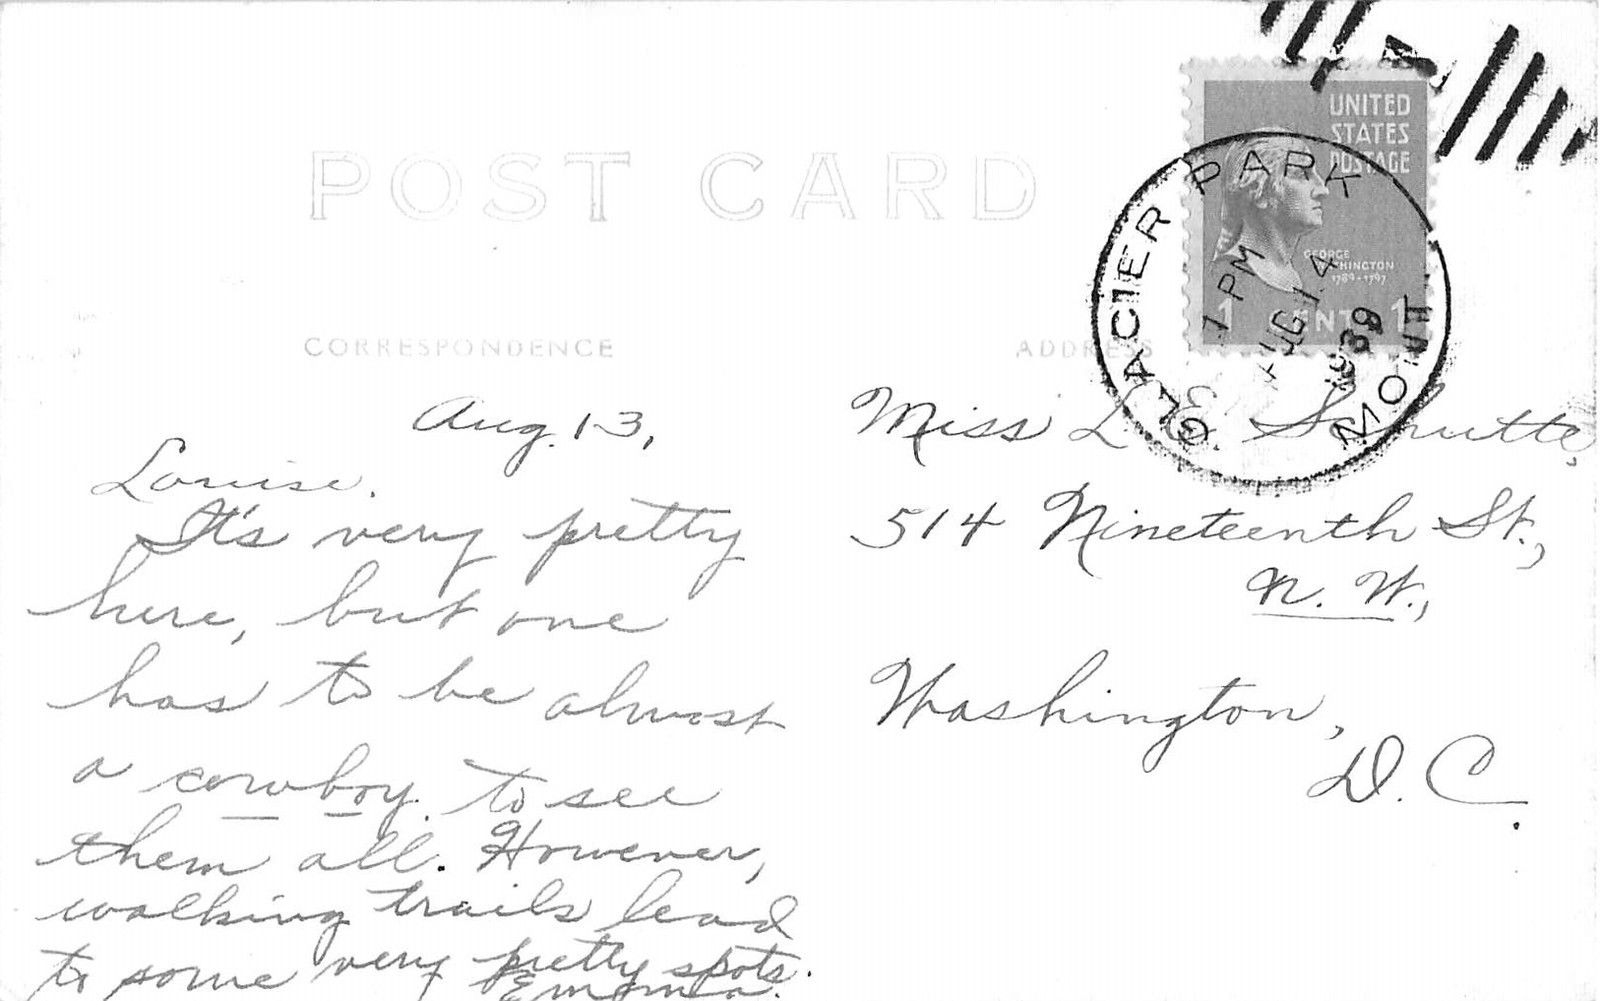 UNITED
STATES
POSTAGE
GEORGE
WASHINGTON
1789-1797
1 CENT 1
GLACIER PARK MONT.
1 PM
AUG 14
1939
POST CARD
CORRESPONDENCE
ADDRESS
Aug. 13,
Louise.
It's very pretty
here, but one
has to be almost
a cowboy to see
them all. However,
walking trails lead
to some very pretty spots.
Emma.
Miss L. E. Schutte,
514 Nineteenth St.,
N. W.,
Washington,
D. C.